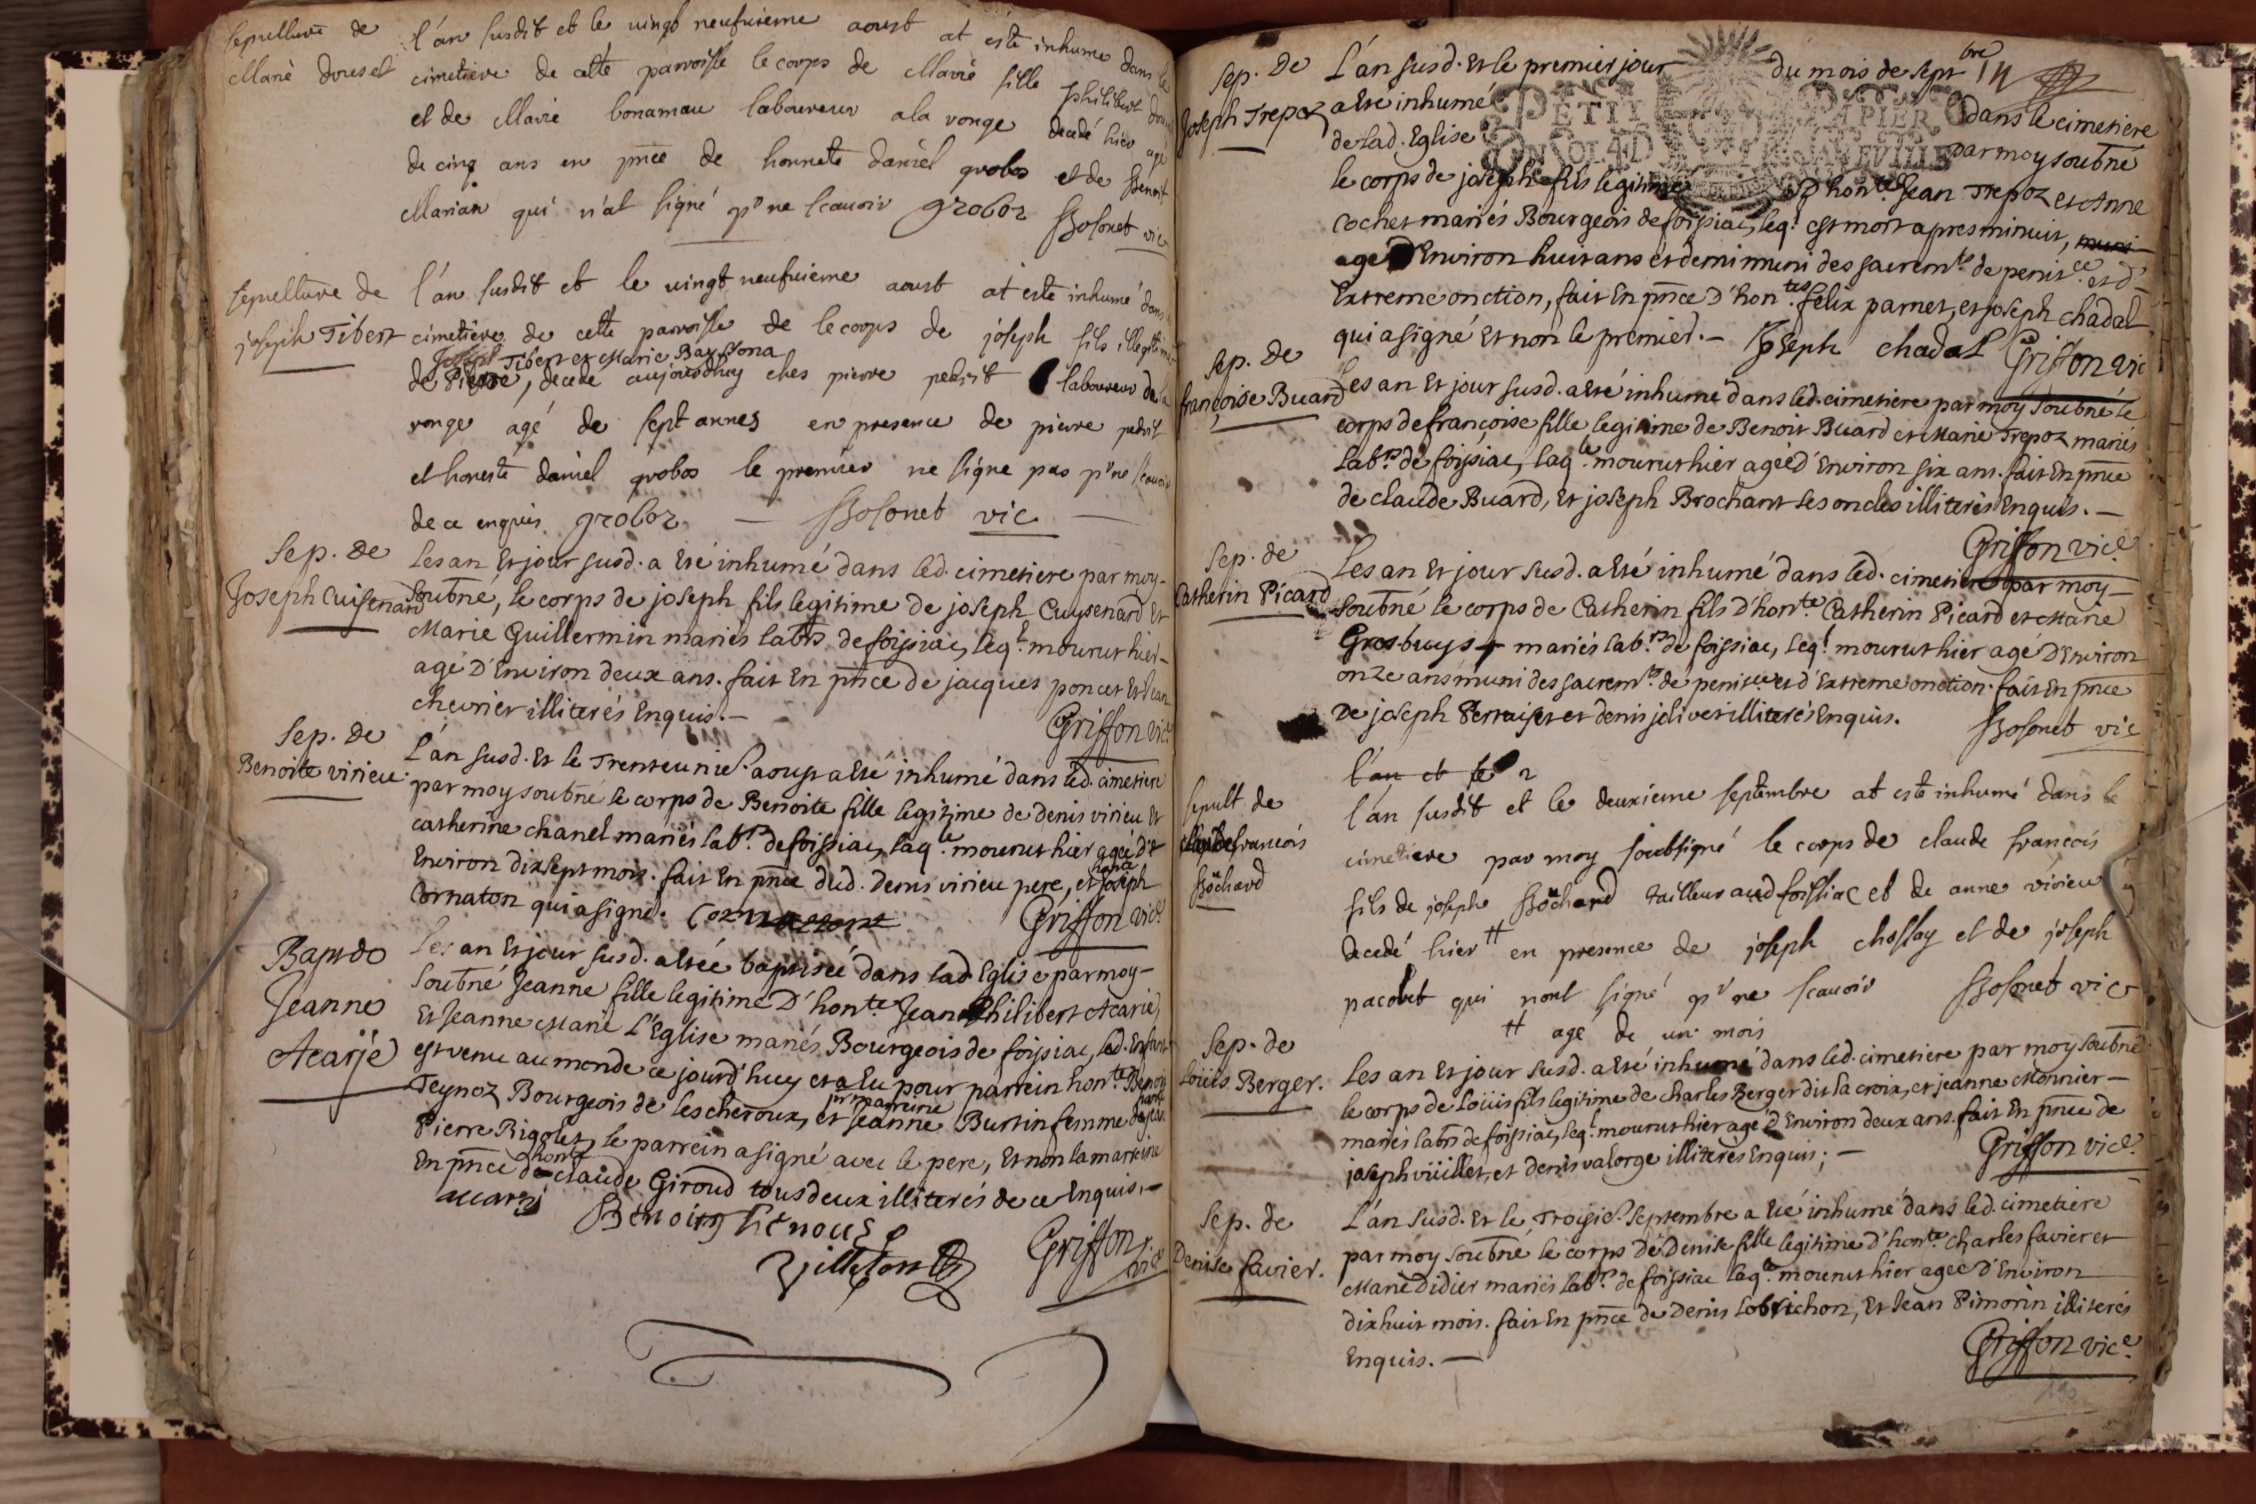 sepulture de
Marie douset
l'an susdit et le vingt neufvieme aoust at esté inhumé dans le
cimetiere de cette parroisse le corps de Marie fille philibert
et de Marie bonamau laboureur a la ronge decedé hier agé
de cinq ans en pnce de honneste daniel grobos et de Benoit
Marian qui n'at signé pr ne scauoir groboz Bosonet vic
sepulture de
joseph Tibert
l'an susdit et le vingt neufuieme aoust at esté inhumé dans
cimetiere de cette parroisse de le corps de joseph fils illegitime
Joseph Tibert et Marie
de Pierre, decede aujourdhuy ches pierre pedrit laboureur de la
ronge agé de sept annes en presence de pierre pedrit
et honeste daniel grobos le premier ne signe pas pr ne scauoir
de ce enquis groboz — Bosonet vic —
Sep. de
Joseph Cuisenard
Les an Et jour susd. a Eté inhumé dans led. cimetiere par moy-
soubné, le corps de joseph fils legitime de joseph Cuysenard Et
Marie Guillermin mariés labrs de foissiac, leql. mourut hier-
agé D'Environ deux ans. fait En pnce de jacques poncet Et jean
chevrier illiterés Enquis.—
Griffon vic.
Sep. de
Benoite virieu
L'an susd. Et le Trenteunie. aoust a Eté inhumé dans led. cimetiere
par moy soubné le corps de Benoite fille legitime de denis virieu Et
catherine chanel mariés labrs. de foissiac, laqle. mourut hier agée d'
Environ dix sept mois. fait En pnce dud. Denis virieu pere, et honte joseph
Cornaton qui a signé. Cornaton
Griffon vice.
Bapt. de
Jeanne
Acarje
Les an Et jour susd. a Etée baptisée dans lad. Eglise par moy-
Soubné Jeanne fille legitime D'honte. Jean Philibert Acarie,
Et Jeanne Marie L'Eglise mariés Bourgeois de foissiac, led. Enfant
est venu au monde ce jourd'huy et a Eu pour parrein honte. Benoit
Teynoz Bourgeois de lescheroux, et pr marreine Jeanne Burtin femme
Pierre Rigolet, le parrein a signé avec le pere, Et non la marreine
En pnce de honte claude Giroud tous deux illiterés de ce Enquis.—
acarij
Benoist
Griffon vice
Sep. De
Joseph Trepoz
L'an susd. Et le premier jour du mois de septbre
14
a Eté inhumé dans le cimetiere
de lad. Eglise par moy soubné
PETIT PAPIER
le corps de joseph fils legitime D'honte. Jean Trepoz et Anne
Cochet mariés Bourgeois de foissiac, leql. est mort apres minuit, muni
agé D'Environ huit ans et demi muni des sacremts. de penitce. et d'
Extreme onction, fait En pnce D'hontes. felix parnet, et joseph chadal
qui a signé Et non le premier.— Joseph chadal Griffon vic
Sep. de
françoise Buard
Les an Et jour susd. a Eté inhumé dans led. cimetiere par moy soubné le
corps de françoise fille legitime de Benoit Buard et Marie Trepoz mariés
labrs. de foissiac, laqle. mourut hier agée d'Environ six ans. fait En pnce
de claude Buard, Et joseph Brochant ses oncles illiterés Enquis.—
Griffon vice.
Sep. de
Catherin Picard
Les an Et jour susd. a Eté inhumé dans led. cimetiere par moy—
soubné le corps de Catherin fils d'honte. Catherin Picard et Marie
Grosbuys mariés labrs. de foissiac, leql. mourut hier agé D'Environ
onze ans muni des sacremts. de penitce. et d'Extreme onction. fait En pnce
De joseph Perraiset et denis jolivet illiterés Enquis.
Bosonet vic
l'an et le 2
sepult de
claude francois
Bochard
l'an susdit et le deuxieme septembre at esté inhumé dans le
cimetiere par moy soubsigné le corps de claude francois
fils de joseph Bochard tailleur aud foissiac et de anne virieu
decedé hier # en presence de joseph chassay et de joseph
pacolut qui nont signé pr ne scauoir Bosonet vic
# agé de un mois
Sep. de
Loüis Berger.
Les an Et jour susd. a Eté inhumé dans led. cimetiere par moy soubné
le corps de Loüis fils legitime de charles Berger dit la croix, et jeanne Monnier—
mariés labrs de foissiac, leql. mourut hier agé D'Environ deux ans. fait En pnce de
joseph vüillet, et denis valorge illiterés Enquis; —
Griffon vice.
Sep. de
Denise favier.
L'an susd. Et le Troisie. septembre a Eté inhumé dans led. cimetiere
par moy soubné le corps de Denise fille legitime d'honte. charles favier et
Marie Didier mariés labrs. de foissiac laqle. mourut hier agée d'Environ
dix huit mois. fait En pnce de Denis Lobrichon, Et Jean Pimorin illiterés
Enquis.—
Griffon vice.